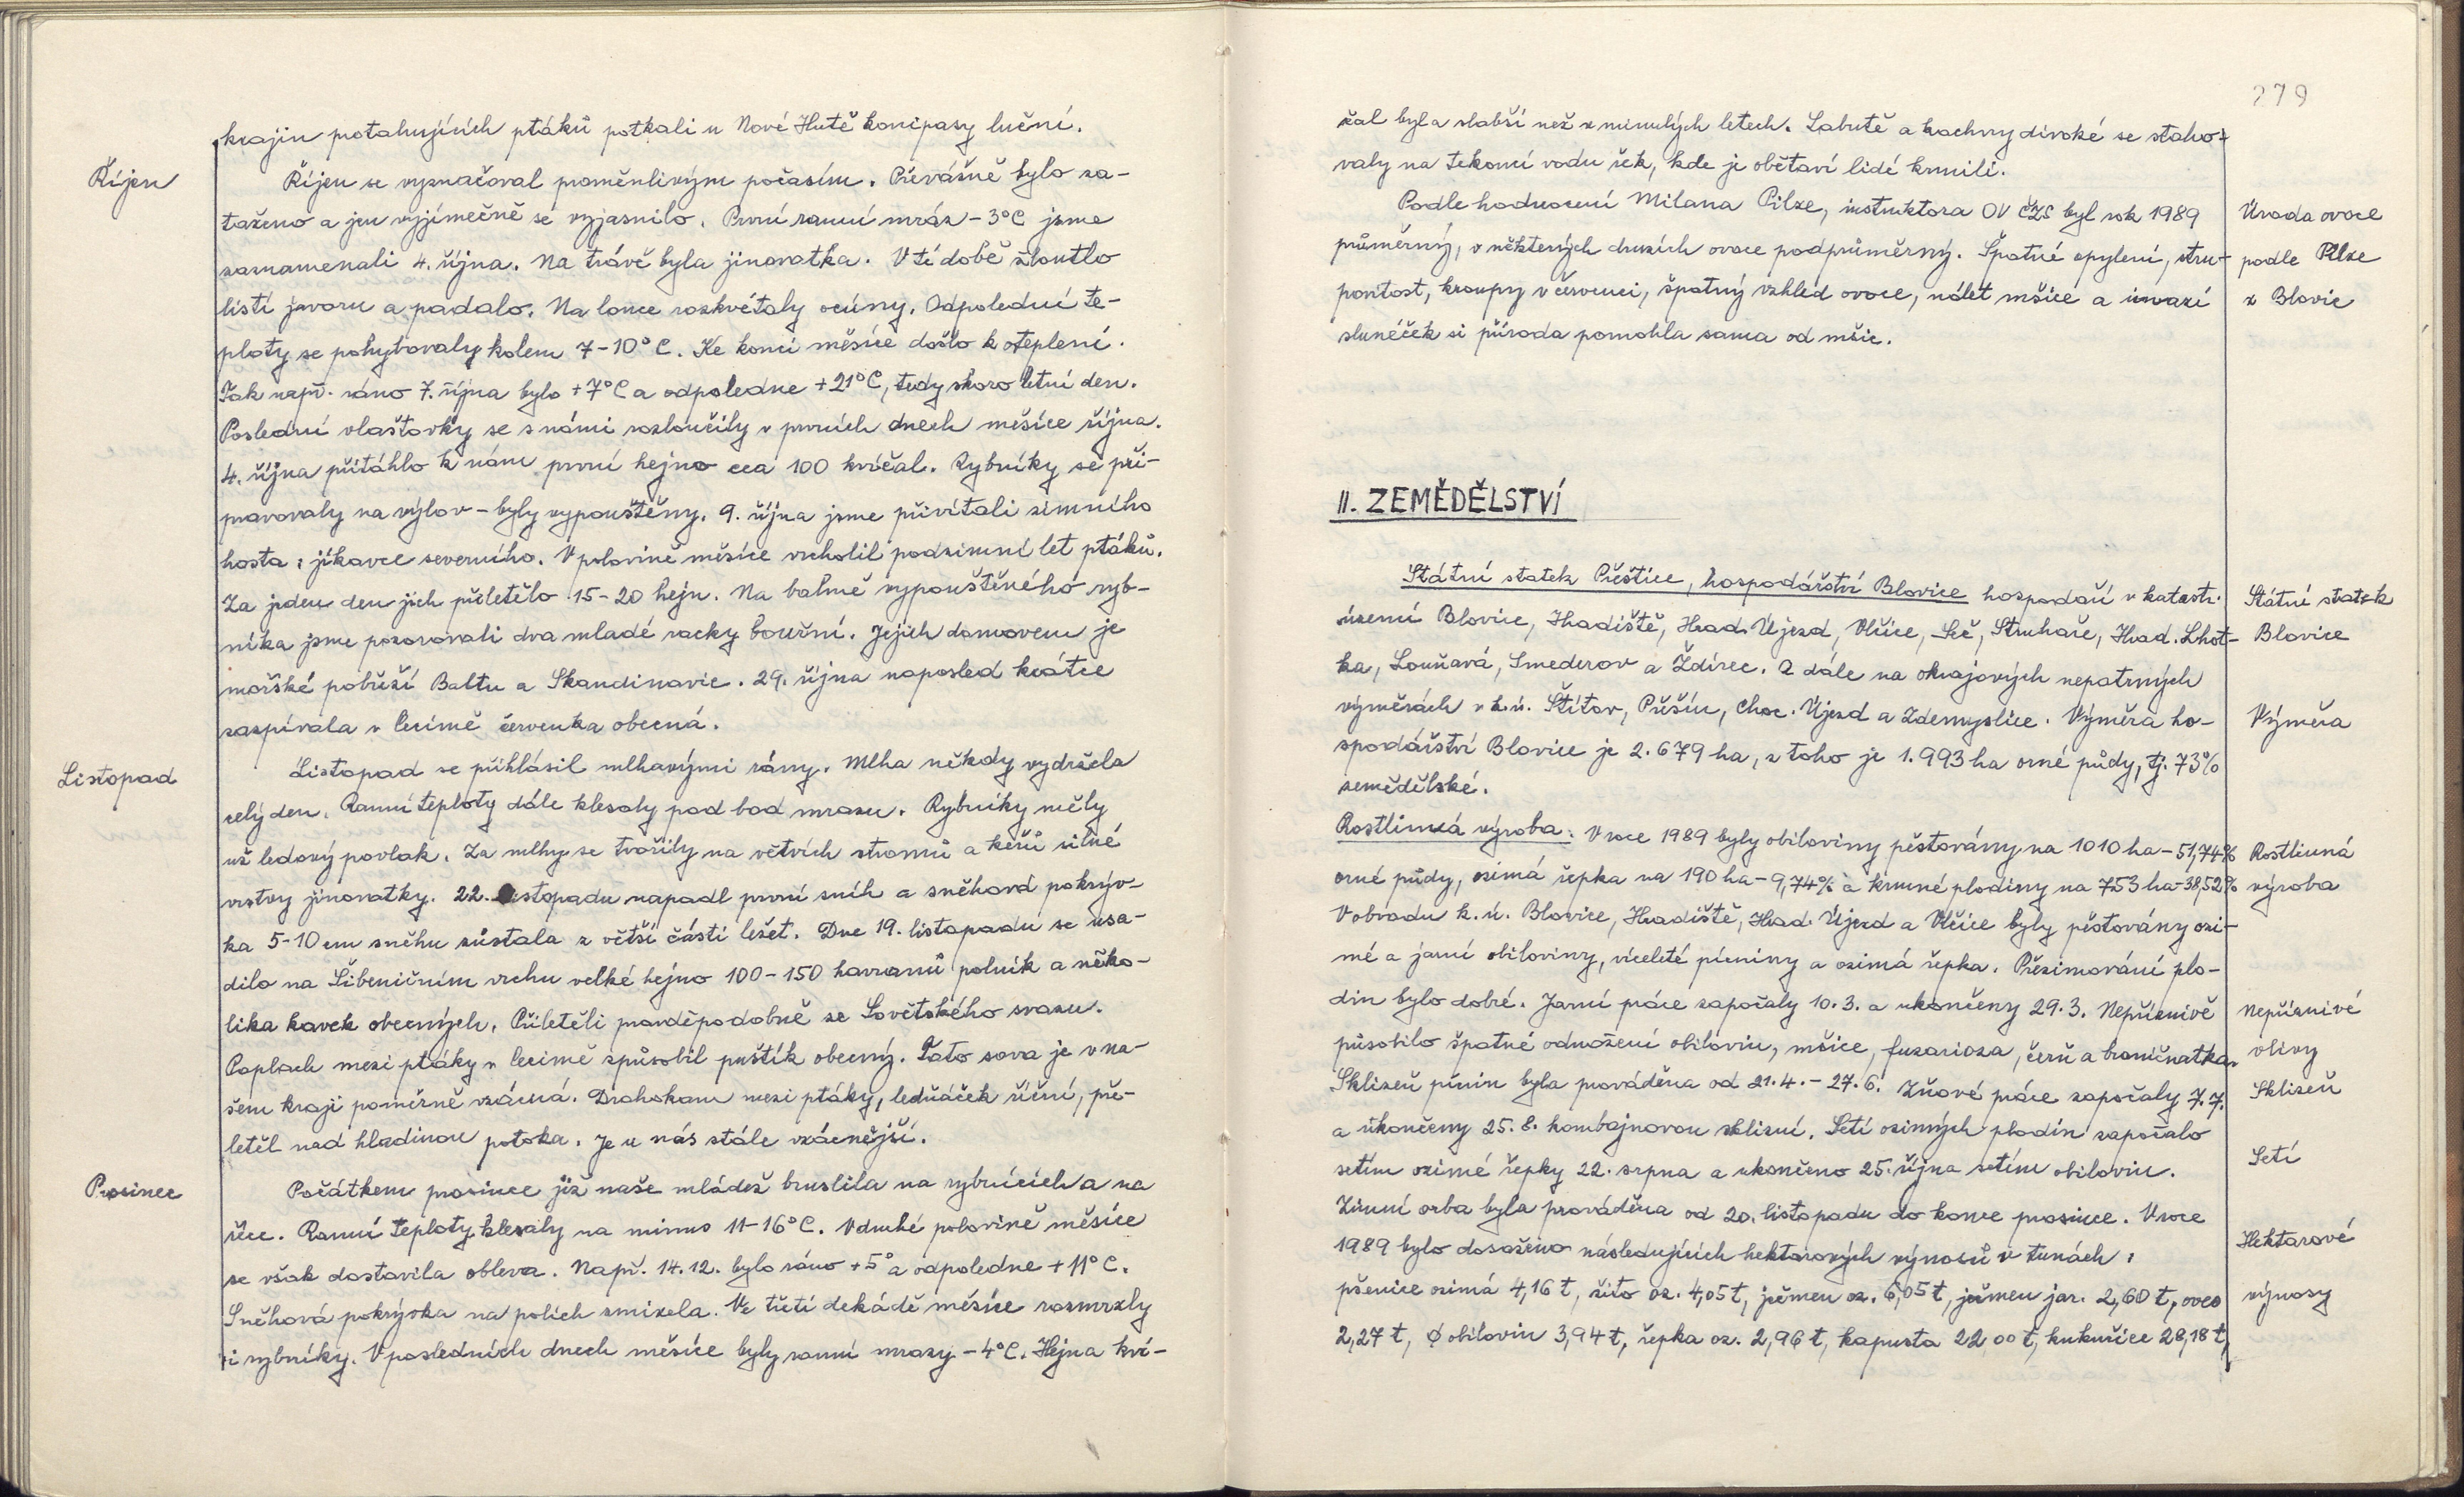 krajin protahujících ptáků potkali u Nové Hutě konipasy luční.
Říjen
Říjen se vyznačoval proměnlivým počasím. Převážně bylo za-
taženo a jen vyjímečně se vyjasnilo. První ranní mráz -3°C jsme
zaznamenali 4. října. Na trávě byla jinovatka. V té době žloutlo
listí javoru a padalo. Na louce rozkvétaly ocúny. Odpolední te-
ploty se pohybovaly kolem 7-10°C. Ke konci měsíce došlo k oteplení.
Tak např. ráno 7. října bylo +7°C a odpoledne +21°C, tedy skoro letní den.
Poslední vlaštovky se s námi rozloučily v prvních dnech měsíce října.
4. října přitáhlo k nám první hejno cca 100 kvíčal. Rybníky se při-
pravovaly na výlov - byly vypouštěny. 9. října jsme přivítali zimního
hosta: jíkavce severního. V polovině měsíce vrcholil podzimní let ptáků.
Za jeden den jich přiletělo 15-20 hejn. Na bahně vypouštěného ryb-
níka jsme pozorovali dva mladé racky bouřní. Jejich domovem je
mořské pobřeží Baltu a Skandinavie. 29. října naposled krátce
zazpívala v Lecimě červenka obecná.
Listopad
Listopad se přihlásil mlhavými rány. Mlha někdy vydržela
celý den. Ranní teploty dále klesaly pod bod mrazu. Rybníky měly
už ledový povlak. Za mlhy se tvořily na větvích stromů a keřů silné
vrstvy jinovatky. 22. listopadu napadl první sníh a sněhová pokrýv-
ka 5-10 cm sněhu zůstala z větší části ležet. Dne 19. listopadu se usa-
dilo na Šibeničním vrchu velké hejno 100-150 havranů polních a něko-
lika kavek obecných. Přiletěli pravděpodobně ze Sovětského svazu.
Poplach mezi ptáky v Lecimě způsobil puštík obecný. Tato sova je v na-
šem kraji poměrně vzácná. Drahokam mezi ptáky, ledňáček říční, pře-
letěl nad hladinou potoka. Je u nás stále vzácnější.
Prosinec
Počátkem prosince již naše mládež bruslila na rybnících a na
řece. Ranní teploty klesaly na minus 11-16°C. V druhé polovině měsíce
se však dostavila obleva. Např. 14.12. bylo ráno +5° a odpoledne +11°C.
Sněhová pokrývka na polích zmizela. Ve třetí dekádě měsíce rozmrzly
i rybníky. V posledních dnech měsíce byly ranní mrazy -4°C. Hejna kví-
279
čal byla slabší než v minulých letech. Labutě a kachny divoké se staho-
valy na tekoucí vodu řek, kde je obětaví lidé krmili.
Podle hodnocení Milana Pilze, instruktora OV ČZS byl rok 1989
průměrný, v některých druzích ovoce podprůměrný. Špatné opylení, stru-
povitost, kroupy v červenci, špatný vzhled ovoce, nálet mšice a invazí
slunéček si příroda pomohla sama od mšic.
Úroda ovoce
podle Pilze
z Blovic
II. ZEMĚDĚLSTVÍ
Státní statek Přeštice, hospodářství Blovice hospodaří v katastr.
území Blovice, Hradiště, Hrad. Újezd, Vlčice, Seč, Struhaře, Hrad. Lhot-
ka, Louňavá, Smederov a Ždírec. A dále na okrajových nepatrných
výměrách v k.ú. Štítov, Přešín, Choc. Újezd a Zdemyslice. Výměra ho-
spodářství Blovice je 2.679 ha, z toho je 1.993 ha orné půdy, tj. 73%
zemědělské.
Státní statek
Blovice
Výměra
Rostlinná výroba: V roce 1989 byly obiloviny pěstovány na 1010 ha - 51,74%
orné půdy, ozimá řepka na 190 ha - 9,74% a krmné plodiny na 753 ha - 38,52%
V obvodu k.ú. Blovice, Hradiště, Hrad. Újezd a Vlčice byly pěstovány ozi-
mé a jarní obiloviny, víceleté pícniny a ozimá řepka. Přezimování plo-
din bylo dobré. Jarní práce započaly 10.3. a ukončeny 29.3. Nepříznivě
působilo špatné odnožení obilovin, mšice, fuzarioza, čerň a braničnatka.
Sklizeň pícnin byla prováděna od 21.4. - 27.6. Žňové práce započaly 7.7.
a ukončeny 25.8. kombajnovou sklizní. Setí ozimných plodin započalo
setím ozimé řepky 22. srpna a ukončeno 25. října setím obilovin.
Zimní orba byla prováděna od 20. listopadu do konce prosince. V roce
1989 bylo dosaženo následujících hektarových výnosů v tunách:
pšenice ozimá 4,16 t, žito oz. 4,05 t, ječmen oz. 6,05 t, ječmen jar. 2,60 t, oves
2,27 t, ϕ obilovin 3,94 t, řepka oz. 2,96 t, kapusta 22,00 t, kukuřice 28,18 t,
Rostlinná
výroba
Nepříznivé
vlivy
Sklizeň
Setí
Hektarové
výnosy